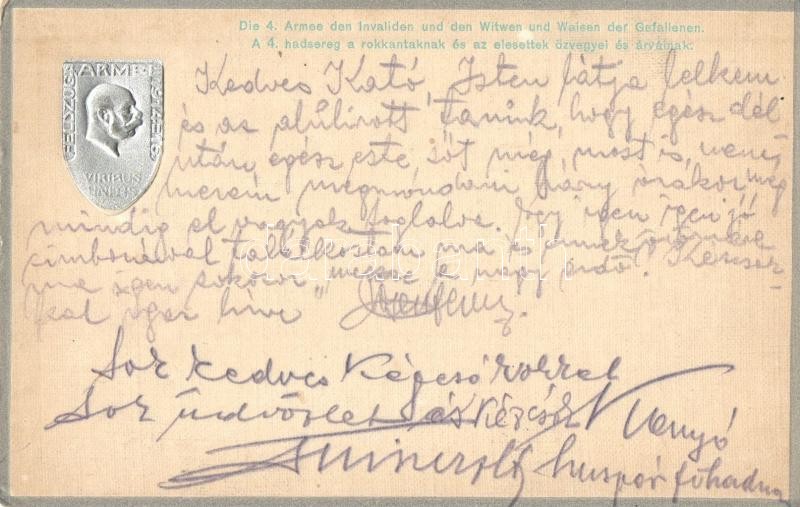 Die 4. Armee den Invaliden und den Witwen und Waisen der Gefallenen.
A 4. hadsereg a rokkantaknak és az elesettek özvegyei és árváinak.
ARMEE
VIRIBUS
UNITIS
Kedves Kató, Isten látja lelkem
és az alulirott tanuk, hogy egész dél
után, egész este sőt még most is, nem
merem megmondani hány órakor még
mindig el vagyok foglalva. Egy igen igen jó
cimborával találkoztam ma és ennek
ma igen sokszor a nagy erdő. Kézcsók-
kal igaz hive
Sok kedves Kézcsókokkal
Sok üdvözlet és Kézcsók
huszár főhadnagy